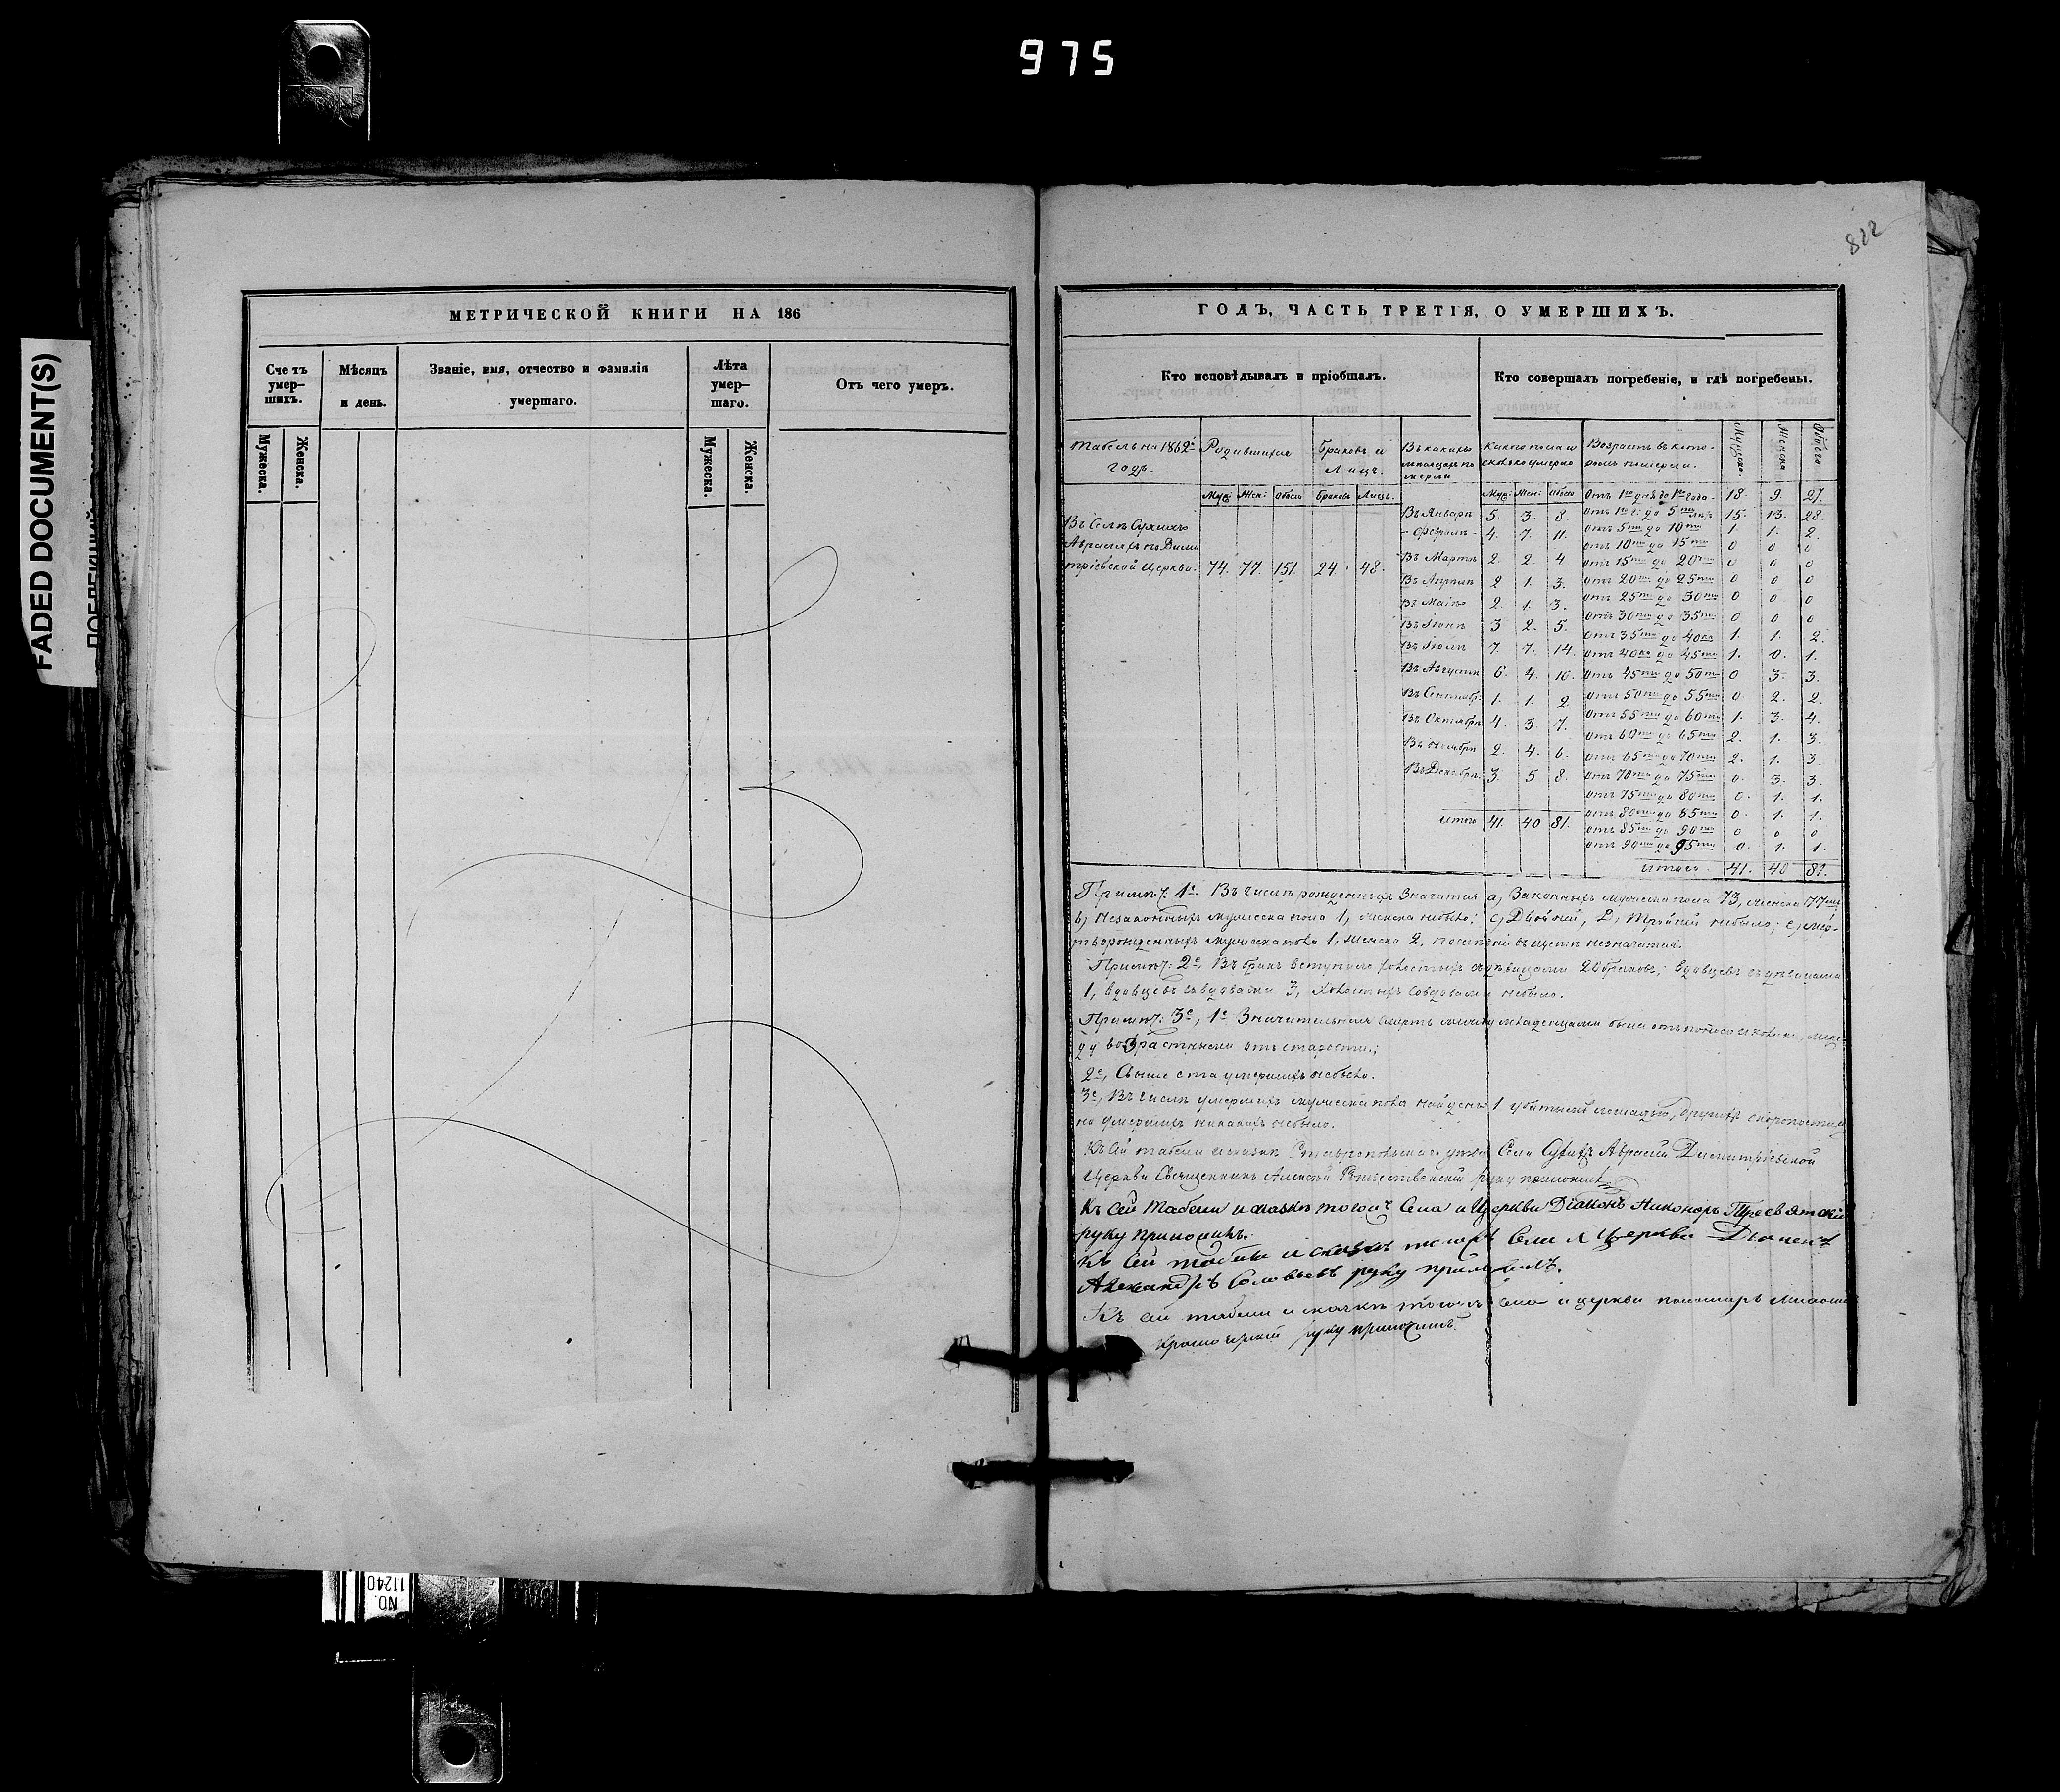 975
822
FADED DOCUMENT(S)
NO.
11240
МЕТРИЧЕСКОЙ КНИГИ НА 186
Счетъ умер-шихъ.
Мѣсяцъ и день.
Званіе, имя, отчество и фамилія умершаго.
Лѣта умер-шаго.
Отъ чего умеръ.
Мужеска.
Женска.
Мужеска.
Женска.
ГОДЪ, ЧАСТЬ ТРЕТІЯ, О УМЕРШИХЪ.
Кто исповѣдывалъ и пріобщалъ.
Кто совершалъ погребеніе, и гдѣ погребены.
Табель на 1862й годъ.
Родившихся
Браковъ и Лицъ.
Въ какихъ мѣсяцахъ по мерли
Какого пола и сколько умерло
Возрастъ въ кото-ромъ померли.
Мужска
Женска
Обоего
Муж: Жен: Обоего Браковъ Лицъ.
Муж: Жен: Обоего
Въ Селѣ Сухихъ
Авраляхъ по Дими
тріевской Церкви. 74. 77. 151. 24. 48.
Въ Январѣ 5. 3. 8.
- Феврал. 4. 7. 11.
Въ Мартѣ 2. 2. 4
Въ Апрѣлѣ 2 1. 3.
Въ Маѣ 2. 1. 3.
Въ Іюнѣ 3 2. 5.
Въ Іюлѣ 7. 7. 14.
Въ Августѣ 6. 4. 10.
Въ Сентябр. 1. 1. 2.
Въ Октябрѣ 4. 3. 7.
Въ Ноябрѣ 2. 4. 6.
Въ Декабрѣ 3. 5 8.
Итого 41. 40 81.
Отъ 1го дня до 1го года. 18. 9. 27.
Отъ 1го г: до 5ти 15. 13. 28.
Отъ 5ти до 10ти 1. 1. 2.
отъ 10ти до 15ти 0 0 0
отъ 15ти до 20ти 0 0 0
Отъ 20ти до 25ти 0 0 0
Отъ 25ти до 30ти 0 0 0
Отъ 30ти до 35ти 0 0 0
Отъ 35ти до 40ка 1. 1. 2.
Отъ 40ка до 45ти 1. 0. 1.
Отъ 45ти до 50ти 0 3. 3.
Отъ 50ти до 55ти 0. 2. 2.
Отъ 55ти до 60ти 1. 3. 4.
Отъ 60ти до 65ти 2. 1. 3.
Отъ 65ти до 70ти 2. 1. 3.
Отъ 70ти до 75ти 0. 3. 3.
Отъ 75ти до 80ти 0. 1. 1.
Отъ 80ти до 85ти 0. 1. 1.
Отъ 85ти до 90ти 0 0 0
Отъ 90ти до 95ти 0. 1. 1.
Итого 41. 40 81.
Примѣч. 1е. Въ числѣ рожденныхъ значатся а, Законныхъ мужеска пола 73, женска 77ми
b, Незаконныхъ мужеска пола 1, женска небыло; с, Двойни, 2, Тройни небыло; е, мер-
творожденныхъ мужеска пола 1, женска 2, послѣдніи въ щетѣ незначатся.
Примѣч: 2е, Въ бракъ вступило холостыхъ съ дѣвицами 20 браковъ; вдовцевъ съ дѣвицами
1, вдовцевъ съ вдовами 3, Холостыхъ со вдовами небыло.
Примѣч: 3е, 1е Значительная смерть между младенцами была отъ поноса и кашли, меж-
ду возрастными отъ старости.;
2е, Свыше ста умершихъ небыло.
3е, Въ числѣ умершихъ мужеска пола найденъ 1 убитый лошадью, другихъ скоропостиж
но умершихъ никакихъ небыло.
Къ сей табели и сказкѣ Ставропольскаго уѣзда Села Сухихъ Авралей Димитріевской
Церкви Священникъ Алексѣй Рождественскій руку приложилъ
Къ сей табели и сказкѣ тогожъ села и Церкви Діаконъ Никоноръ Тресвятскій
руку приложилъ.
Къ сей табели и сказкѣ тогожъ села и Церкви Дьячекъ
Александръ Соловьевъ руку приложилъ.
Къ сей табели и сказкѣ тогожъ села и церкви пономарь
руку приложилъ.